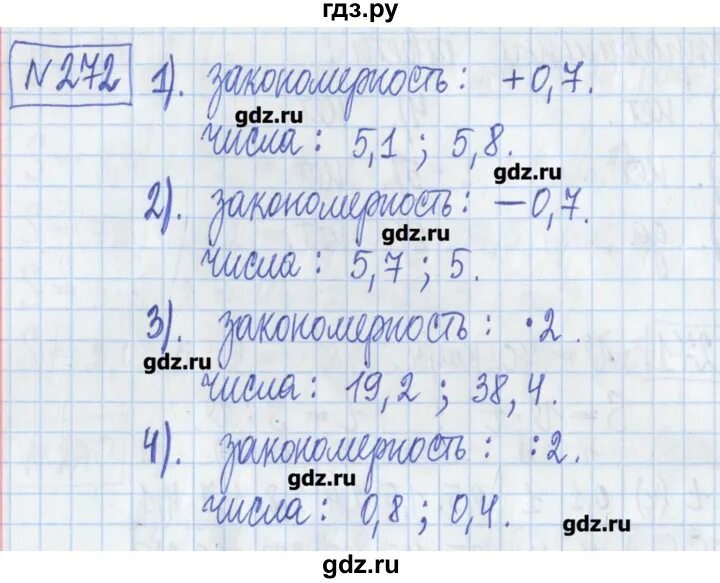 гдз.ру
N 272 1). закономерность: +0,7.
gdz.ru
числа: 5,1 ; 5,8.
gdz.ru
2). закономерность: −0,7.
gdz.ru
числа: 5,7 ; 5.
3). закономерность: · 2.
gdz.ru
числа: 19,2 ; 38,4.
4). закономерность: : 2.
gdz.ru
числа: 0,8 ; 0,4.
gdz.ru
gdz.ru